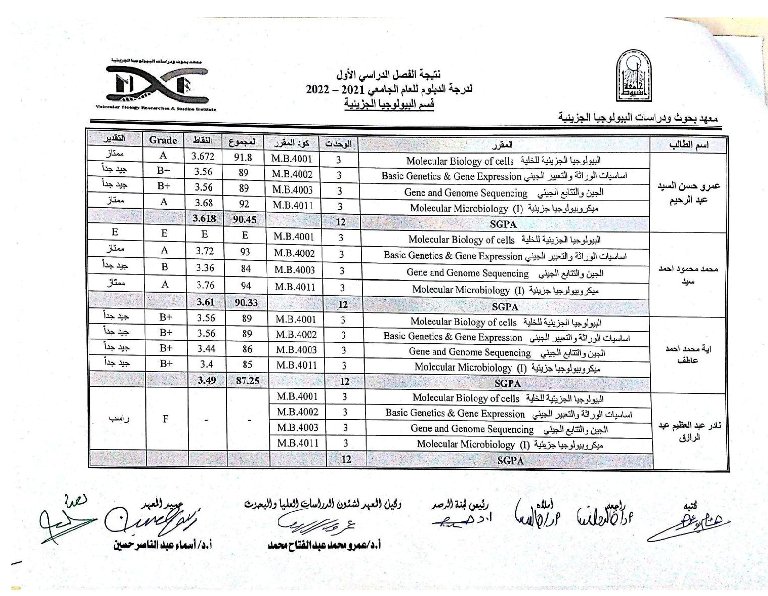 معهد بحوث ودراسات البيولوجيا الجزيئية
Molecular Biology Researches & Studies Institute
نتيجة الفصل الدراسي الأول
لدرجة الدبلوم للعام الجامعي 2021 – 2022
قسم البيولوجيا الجزيئية
معهد بحوث ودراسات البيولوجيا الجزيئية
اسم الطالب المقرر الوحدت كود المقرر المجموع النقاط Grade التقدير
عمرو حسن السيد عبد الرحيم
البيولوجيا الجزيئية للخلية Molecular Biology of cells 3 M.B.4001 91.8 3.672 A ممتاز
اساسيات الوراثة والتعبير الجيني Basic Genetics & Gene Expression 3 M.B.4002 89 3.56 B– جيد جداً
الجين والتتابع الجيني Gene and Genome Sequencing 3 M.B.4003 89 3.56 B+ جيد جداً
ميكروبيولوجيا جزيئية Molecular Microbiology (I) 3 M.B.4011 92 3.68 A ممتاز
SGPA 12 90.45 3.618
محمد محمود احمد سيد
البيولوجيا الجزيئية للخلية Molecular Biology of cells 3 M.B.4001 E E E E
اساسيات الوراثة والتعبير الجيني Basic Genetics & Gene Expression 3 M.B.4002 93 3.72 A ممتاز
الجين والتتابع الجيني Gene and Genome Sequencing 3 M.B.4003 84 3.36 B جيد جداً
ميكروبيولوجيا جزيئية Molecular Microbiology (I) 3 M.B.4011 94 3.76 A ممتاز
SGPA 12 90.33 3.61
اية محمد احمد عاطف
البيولوجيا الجزيئية للخلية Molecular Biology of cells 3 M.B.4001 89 3.56 B+ جيد جداً
اساسيات الوراثة والتعبير الجيني Basic Genetics & Gene Expression 3 M.B.4002 89 3.56 B+ جيد جداً
الجين والتتابع الجيني Gene and Genome Sequencing 3 M.B.4003 86 3.44 B+ جيد جداً
ميكروبيولوجيا جزيئية Molecular Microbiology (I) 3 M.B.4011 85 3.4 B+ جيد جداً
SGPA 12 87.25 3.49
نادر عبد العظيم عبد الرازق
البيولوجيا الجزيئية للخلية Molecular Biology of cells 3 M.B.4001 - - F راسب
اساسيات الوراثة والتعبير الجيني Basic Genetics & Gene Expression 3 M.B.4002
الجين والتتابع الجيني Gene and Genome Sequencing 3 M.B.4003
ميكروبيولوجيا جزيئية Molecular Microbiology (I) 3 M.B.4011
SGPA 12
كتبه راجعه أملاه رئيس لجنة الرصد وكيل المعهد لشئون الدراسات العليا والبحوث عميد المعهد
أ.د/عمرو محمد عبدالفتاح محمد أ.د/ أسماء عبدالناصر حسين